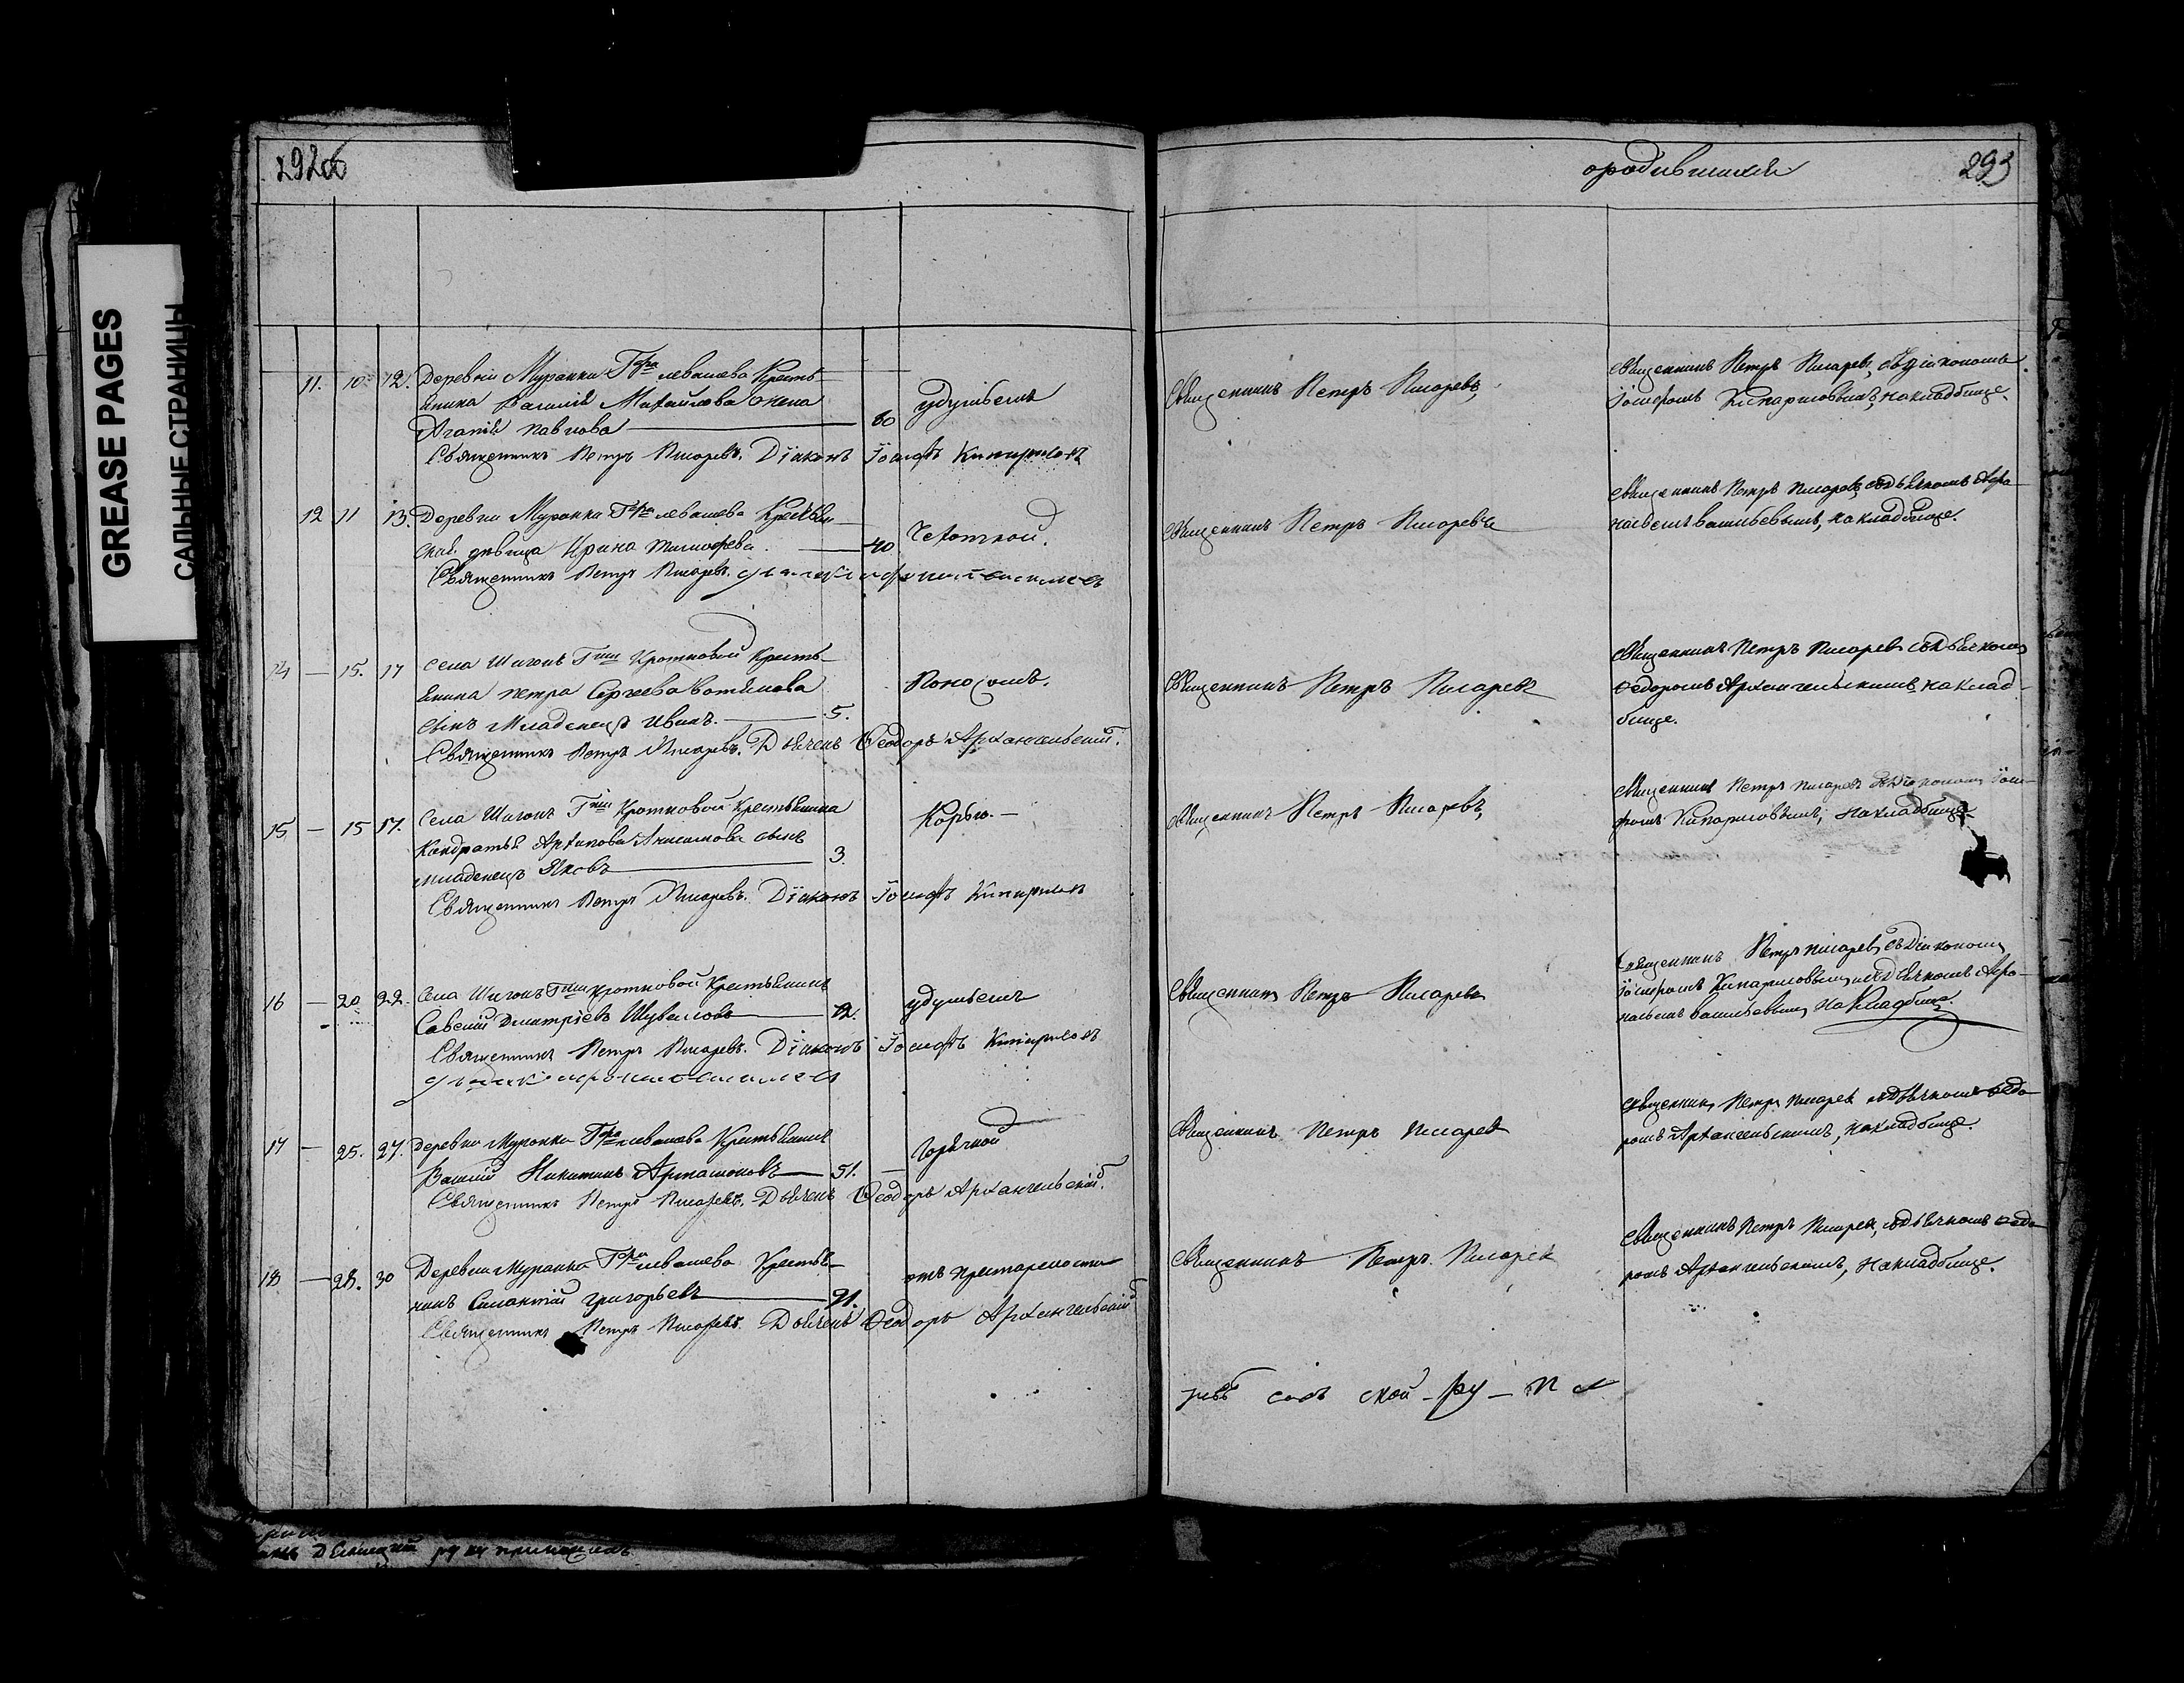 GREASE PAGES
САЛЬНЫЕ СТРАНИЦЫ
292об
11. 10. 12. Деревни Муранки Гдна Левашева Кресть-
янина Василія Михайлова жена
Агафія Павлова 60 удушьемъ
Священникъ Петръ Писаревъ. Дїаконъ Іосифъ Кипарисовъ
12 11 13. Деревни Муранки Гдна Левашева Крестьян-
ская дѣвица Ирина Тимофеева. 40 Чахоткой.
Священникъ Петръ Писаревъ
14 — 15. 17 Села Шигонъ Гжи Кротковой Кресть-
янина Петра Сергеева
сынъ Младенецъ Иванъ. 5. Поносомъ.
Священникъ Петръ Писаревъ. Дьячекъ Ѳеодоръ Архангельскій.
15 — 15 17. Села Шигонъ Гжи Кротковой Крестьянина
Кондратья Архипова Анисимова сынъ
младенецъ Яковъ 3. Корью.
Священникъ Петръ Писаревъ. Дїаконъ Іосифъ Кипарисовъ
16 — 20 22. Села Шигонъ Гжи Кротковой Крестьянинъ
Савелій Дмитріевъ Шуваловъ 12. удушьемъ
Священникъ Петръ Писаревъ. Дїаконъ Іосифъ Кипарисовъ
17 — 25. 27. Деревни Муранки Гдна Левашева Крестьянинъ
Василій Никитинъ Артамоновъ 51. Горячкой
Священникъ Петръ Писаревъ. Дьячекъ Ѳеодоръ Архангельскій.
18. — 28. 30 Деревни Муранки Гдна Левашева Крестья-
нинъ Силантій Григорьевъ 91. отъ престарелости
Священникъ Петръ Писаревъ. Дьячекъ Ѳеодоръ Архангельскій
293
Священникъ Петръ Писаревъ,
Священникъ Петръ Писаревъ, съ Діакономъ
Іосифомъ Кипарисовымъ, на кладбище.
Священникъ Петръ Писаревъ
Священникъ Петръ Писаревъ, съ дьячкомъ Афа-
насьемъ Васильевымъ, на кладбище.
Священникъ Петръ Писаревъ
Священникъ Петръ Писаревъ съ дьячкомъ
Ѳедоромъ Архангельскимъ, на клад-
бище.
Священникъ Петръ Писаревъ,
Священникъ Петръ Писаревъ съ Діакономъ Іоси-
фомъ Кипарисовымъ, на кладбище.
Священникъ Петръ Писаревъ
Священникъ Петръ Писаревъ, съ Діакономъ
Іосифомъ Кипарисовымъ и съ дьячкомъ Афа-
насьемъ Васильевымъ на Кладбище.
Священникъ Петръ Писаревъ
Священникъ Петръ Писаревъ съ дьячкомъ Ѳедо-
ромъ Архангельскимъ, на кладбище.
Священникъ Петръ Писаревъ
Священникъ Петръ Писаревъ, съ дьячкомъ Ѳедо-
ромъ Архангельскимъ, на кладбище.
ской - ру - п
руку приложилъ